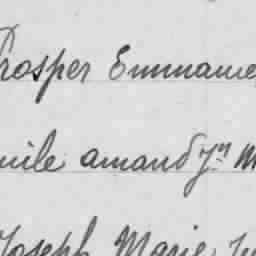 Prosper Emmanue
mile amand Jn M
Joseph Marie Ju